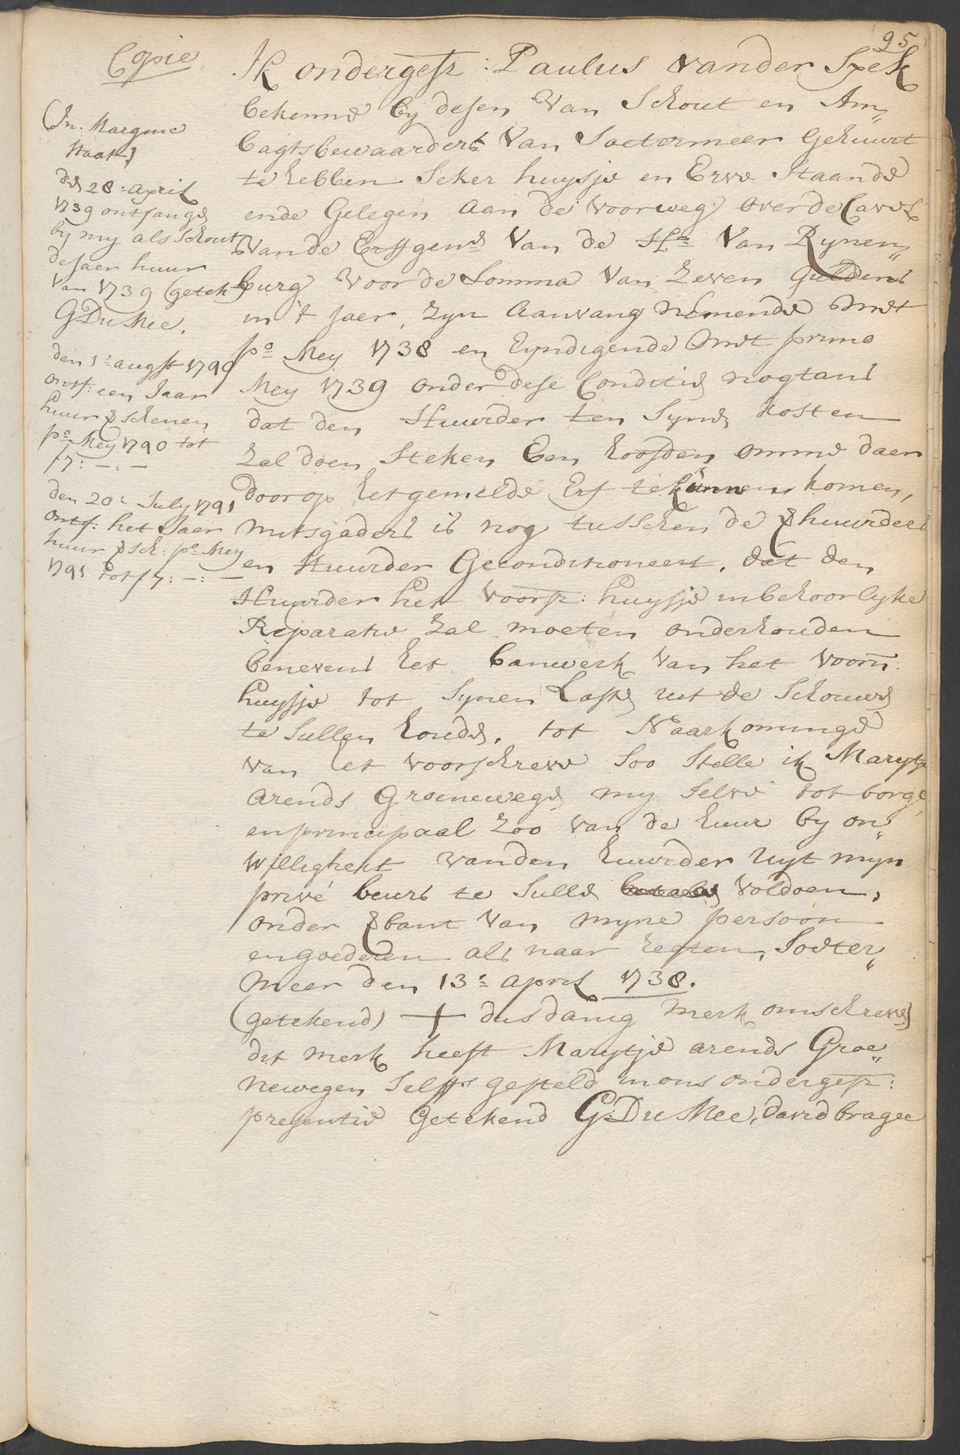 95
Copie
(In Margine
Staat)
den 28: april
1739 ontfange
by my als Schout
de Jaer huur
van 1739 (getek:)
G Du Mee.
den 1: augst 1790
ontf: een Jaar
huur verschenen
po Mey 1790 tot
f 7:—:—
den 20: July 1791
ontf: het Jaar
huur versch: po Mey
1791 tot f 7:—:—
Ik ondergesz: Paulus vander Spek
bekenne by desen van Schout en Am„
bagtsbewaarders van Soetermeer Gehuurt
te hebben Seker huysje en Erve Staande
ende Gelegen aan de voorweg over de Cavel
vande Erffgen: van de Hr. van Rynen„
burg voor de Somma van Zeven guldens
in 't Jaer, Zyn aanvang nemende met
po Mey 1738 en Eyndigende met primo
Mey 1739 onder dese Conditie nogtans
dat den Huurder ten Synen kosten
Zal doen Steken Een hoosden omme daer
door op het gemelde Erf te kunnen komen,
mitsgaders is nog tusschen de verhuurders
en Huurder Geconditioneert, dat den
Huurder het voorsz: huysje in behoorlyke
Reparatie Zal moeten onderhouden
benevens het banwerk van het voorn:
huysje tot Synen Laste uit de Schouwe
te Sullen houde, tot Naarkominge
van het voorschreve Soo Stelle ik Marytje
Arends Groenewege my Selve tot borge
en principaal Zoo van de huur by on„
willigheit vanden huurder uyt myn
privé beurs te Sulle betale voldoen,
onder verbant van myne persoon
en goederen als naar regten, Soeter„
meer den 13: april 1738.
(getekend) + dusdanig merk omschreve
dit merk heeft Marytje arends Groe„
newegen Selffs gesteld in ons ondergesz:
presentie Getekend G: Du Mee, David bragee